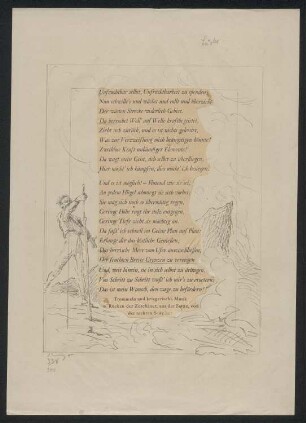 Unfruchtbar selbst, Unfruchtbarkeit zu spenden;
Nun schwillt's und wächst und rollt und überzieht
Der wüsten Strecke widerlich Gebiet.
Da herrschet Well' auf Welle kraftbegeistet,
Zieht sich zurück, und es ist nichts geleistet,
Was zur Verzweiflung mich beängstigen könnte!
Zwecklose Kraft unbändiger Elemente!
Da wagt mein Geist, sich selbst zu überfliegen;
Hier möcht' ich kämpfen, dies möcht' ich besiegen!
Und es ist möglich! – Flutend wie sie sei,
An jedem Hügel schmiegt sie sich vorbei;
Sie mag sich noch so übermütig regen,
Geringe Höhe ragt ihr stolz entgegen,
Geringe Tiefe zieht sie mächtig an.
Da faßt' ich schnell im Geiste Plan auf Plan:
Erlange dir das köstliche Genießen,
Das herrische Meer vom Ufer auszuschließen,
Der feuchten Breite Grenzen zu verengen
Und, weit hinein, sie in sich selbst zu drängen.
Von Schritt zu Schritt wußt' ich mir's zu erörtern;
Das ist mein Wunsch, den wage zu befördern!
Trommeln und kriegerische Musik
im Rücken der Zuschauer, aus der Ferne, von
der rechten Seite her.